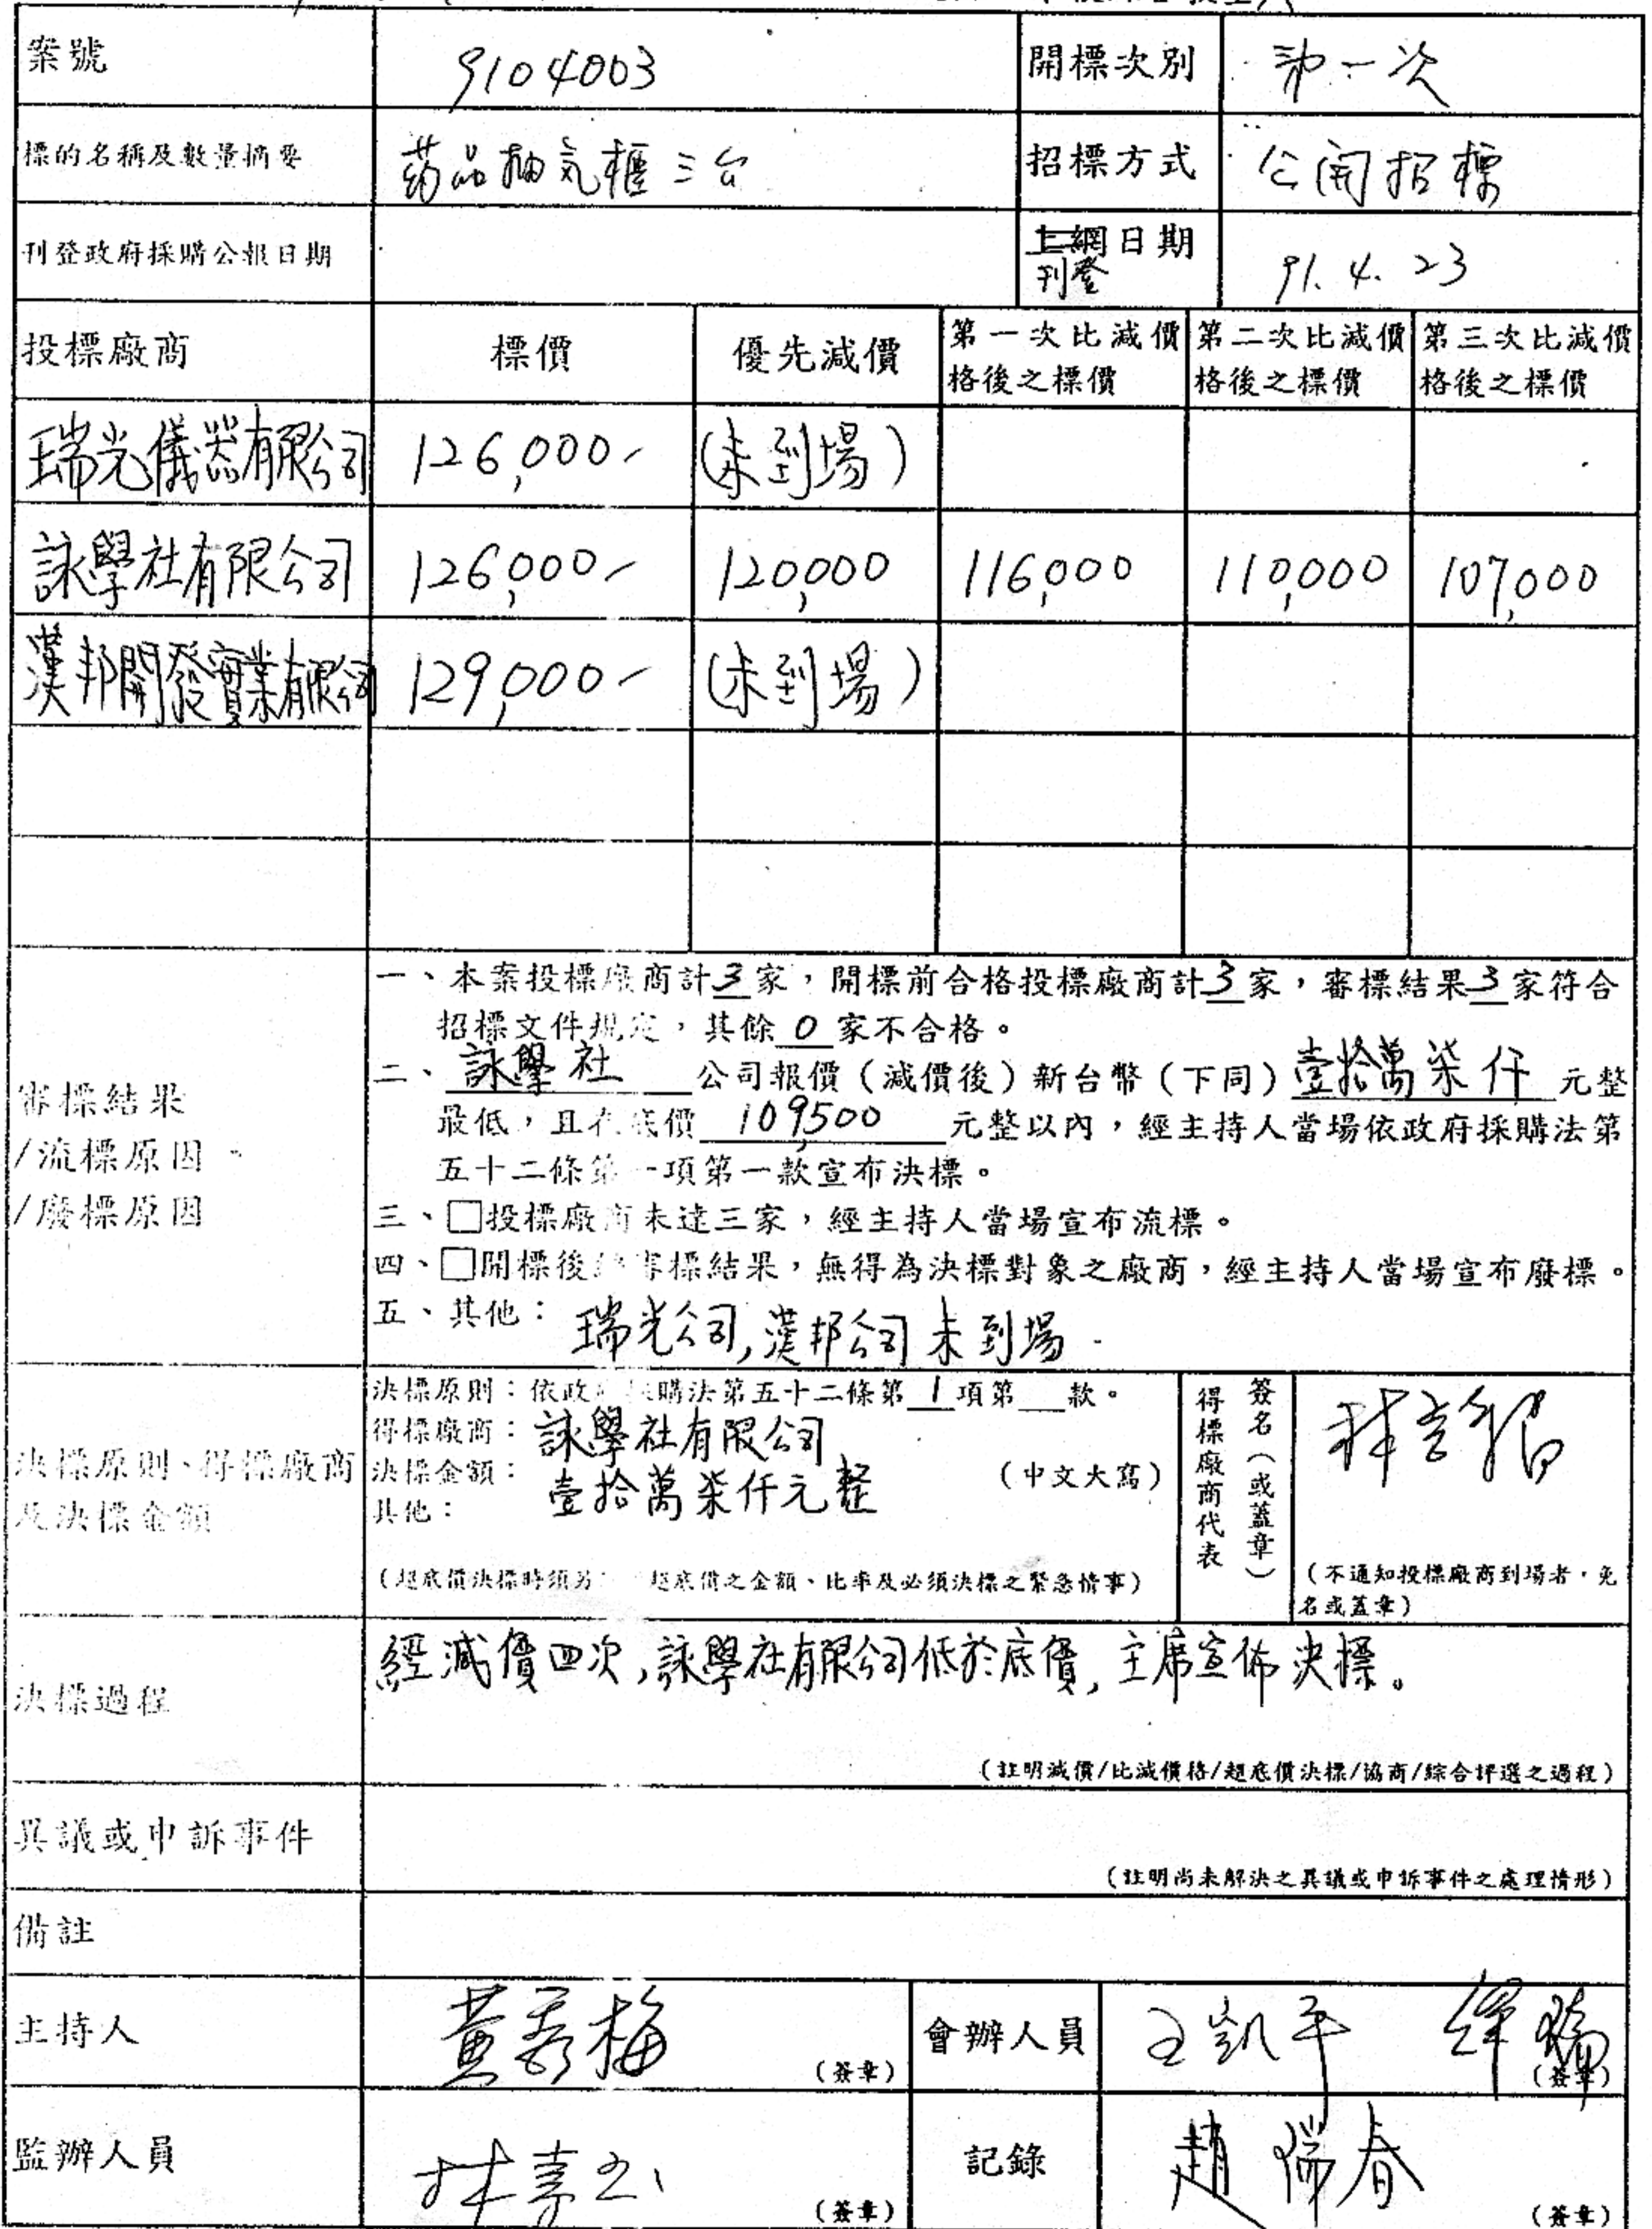 案號 9104003 開標次別 第一次
標的名稱及數量摘要 葯品抽氣櫃三台 招標方式 公開招標
刊登政府採購公報日期 上網日期 91.4.23
刊登
投標廠商 標價 優先減價 第一次比減價格後之標價 第二次比減價格後之標價 第三次比減價格後之標價
瑞光儀器有限公司 126,000- (未到場)
詠學社有限公司 126,000- 120,000 116,000 110,000 107,000
漢邦開發實業有限公司 129,000- (未到場)
審標結果
/流標原因
/廢標原因
一、本案投標廠商計3家，開標前合格投標廠商計3家，審標結果3家符合
招標文件規定，其餘0家不合格。
二、詠學社公司報價（減價後）新台幣（下同）壹拾萬柒仟元整
最低，且在底價109,500元整以內，經主持人當場依政府採購法第
五十二條第一項第一款宣布決標。
三、□投標廠商未達三家，經主持人當場宣布流標。
四、□開標後經審標結果，無得為決標對象之廠商，經主持人當場宣布廢標。
五、其他：瑞光公司,漢邦公司未到場.
決標原則、得標廠商
及決標金額
決標原則：依政府採購法第五十二條第1項第 款。
得標廠商：詠學社有限公司
決標金額：壹拾萬柒仟元整（中文大寫）
其他：
（超底價決標時須另 超底價之金額、比率及必須決標之緊急情事）
得標廠商代表
簽名（或蓋章）
（不通知投標廠商到場者，免
名或蓋章）
決標過程 經減價四次,詠學社有限公司低於底價,主席宣佈決標。
（註明減價/比減價格/超底價決標/協商/綜合評選之過程）
異議或申訴事件
（註明尚未解決之異議或申訴事件之處理情形）
備註
主持人 （簽章） 會辦人員 王凱平 （簽章）
監辦人員 （簽章） 記錄 趙瑞春 （簽章）